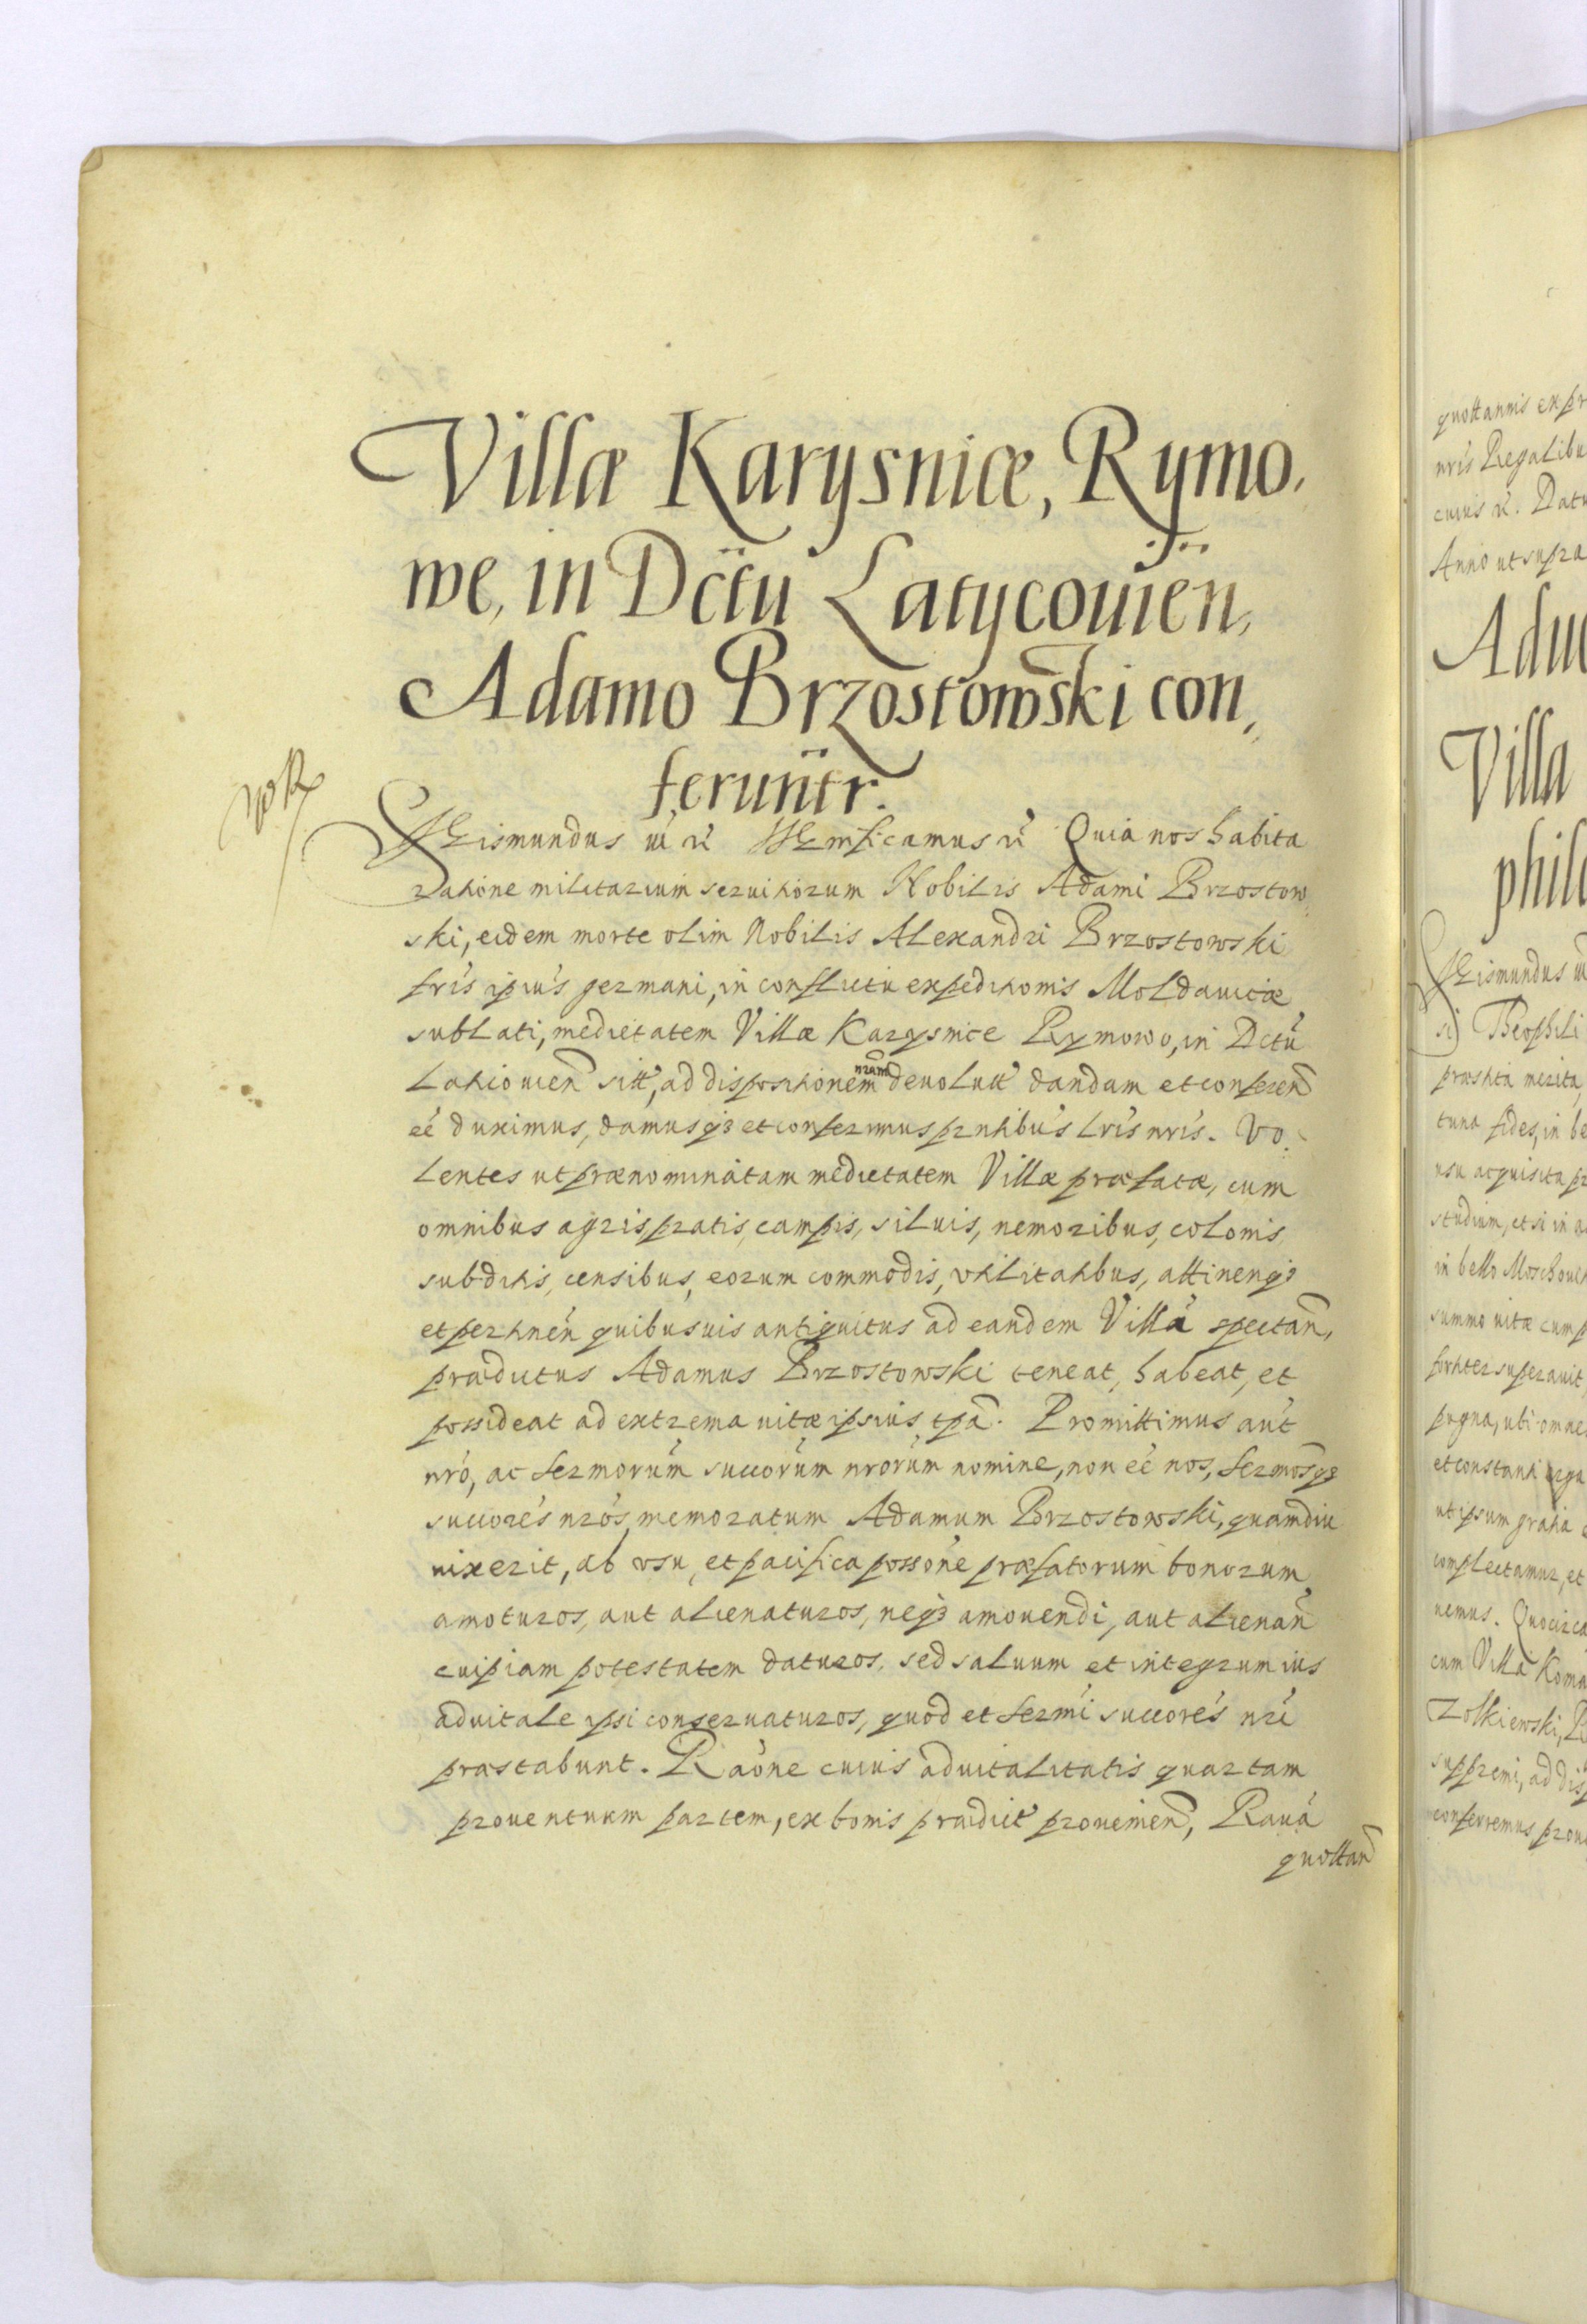 Villæ Karysnice, Rymo,
we, in Dctu Latycouien,
Adamo Brzostowski con,
feruntr.
Sigismundus III rc Significamus rc Quia nos habita
ratione militarium seruitiorum Nobilis Adami Brzostow,
ski, eidem morte olim Nobilis Alexandri Brzostowski
fris ipius germani, in conflictu expeditionis Moldauicæ
sublati, medietatem Villæ Karysnice Rymowo, in Dctu
Laticouien sitt, ad dispositionem nram deuolutt dandam et conferen
eé duximus, damusq3 et conferimus prntibus lris nris. Vo,
lentes ut prænominatam medietatem Villæ præfatæ, cum
omnibus agris, pratis, campis, siluis, nemoribus, colonis,
subditis, censibus, eorum commodis, vtilitatibus, attinenq3
et pertinén quibusuis antiquitus ad eandem Villá spectan,
prædictus Adamus Brzostowski teneat, habeat, et
possideat ad extrema uitæ ipsius tpa. Promittimus aút
nró, ac sermorúm succorúm nrorúm nomine, non eé nos, sermosq3
succorés nrós, memoratum Adamum Brzostowski, quamdiu
uixerit, ab vsu, et pacifica possóne præfatorum bonorum
amoturos, aut alienaturos, neq3 amouendi, aut alienan
cuipiam potestatem daturos, sed saluum et integrum ius
aduitale ipsi conseruaturos, quod et sermi succorés nri
præstabunt. Raóne cuius aduitalitatis quartam
prouentuum partem, ex bonis prædict prouenien, Rauá
quottan
quottannis ex pr
nris Regalibu
cuius rc. Datu
Anno ut supra
Adu
Villa
phil
Sigismundus III
si Theophili
præstita merita,
tuna fides, in be
usu acquisita pr
studium, et si in a
in bello Moschoui
summo uitæ cum p
fortiter superauit
pugna, ubi omne
et constanti erga
ut ipsum gratia
complectamur, et
uemus. Quocirca
cum Villa Koma
Zolkiewski, R
suppremi, ad dis
conferremus prou